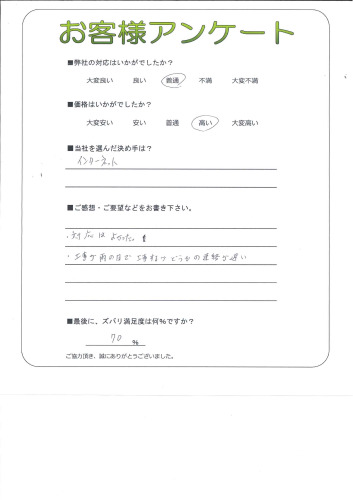 お客様アンケート
■弊社の対応はいかがでしたか？
大変良い 良い 普通 不満 大変不満
■価格はいかがでしたか？
大変安い 安い 普通 高い 大変高い
■当社を選んだ決め手は？
インターネット
■ご感想・ご要望などをお書き下さい。
・対応はよかった。
・工事が雨の日で工事なのかどうかの連絡が遅い
■最後に、ズバリ満足度は何％ですか？
70 ％
ご協力頂き、誠にありがとうございました。